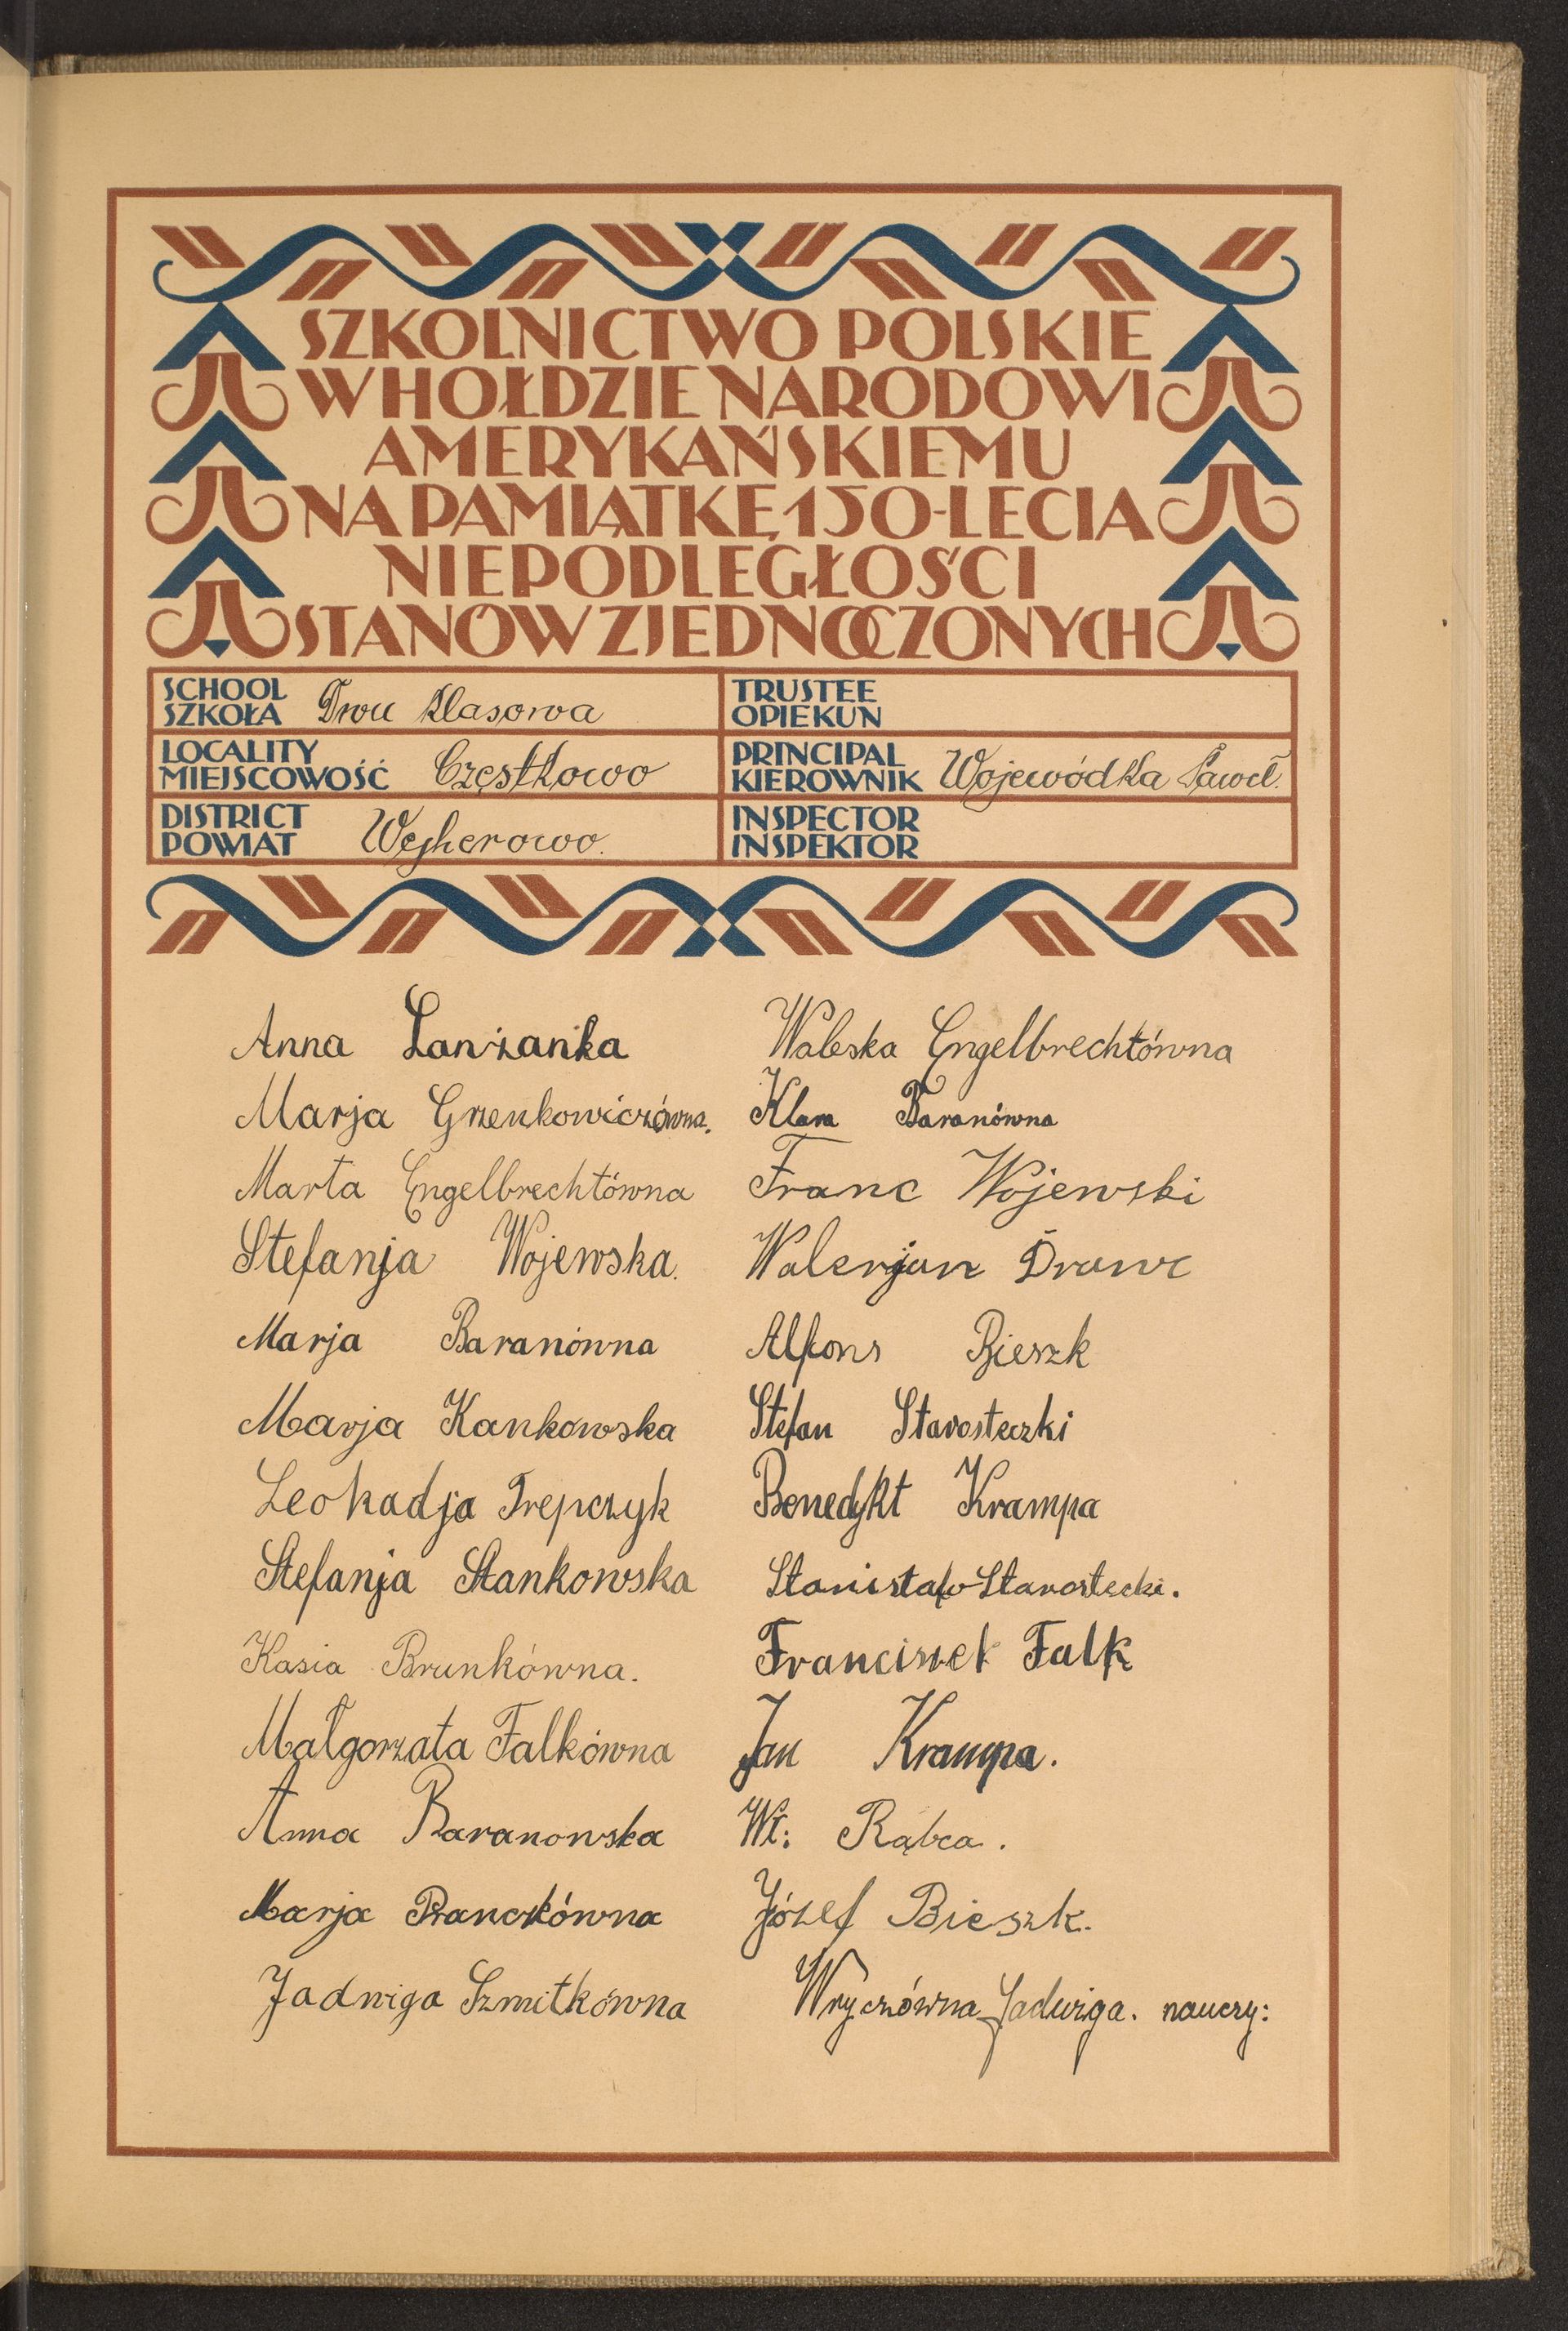 SZKOLNICTWO POLSKIE
W HOŁDZIE NARODOWI
AMERYKAŃSKIEMU
NA PAMIĄTKĘ 150-LECIA
NIEPODLEGŁOŚCI
STANÓW ZJEDNOCZONYCH
SCHOOL
SZKOŁA Dwu klasowa
TRUSTEE
OPIEKUN
LOCALITY
MIEJSCOWOŚĆ Częstkowo
PRINCIPAL
KIEROWNIK Wojewódka Paweł.
DISTRICT
POWIAT Wejherowo.
INSPECTOR
INSPEKTOR
Anna Lanżanka
Marja Grzenkowiczówna.
Marta Engelbrechtówna
Stefanja Wojewska.
Marja Baranówna
Marja Kankowska
Leokadja Trepczyk
Stefanja Stankowska
Kasia Brunkówna.
Małgorzata Falkówna
Anna Baranowska
Marja
Jadwiga Szmitkówna
Waleska Engelbrechtówna
Klara Baranówna
Franc Wojewski
Walerjan Drawc
Alfons Bieszk
Stefan Starosteczki
Benedykt Krampa
Stanisław Starostecki.
Franciszek Falk
Jan Krampa.
Wł: Rąbca.
Józef Bieszk.
Wryczówna Jadwiga. nauczy: